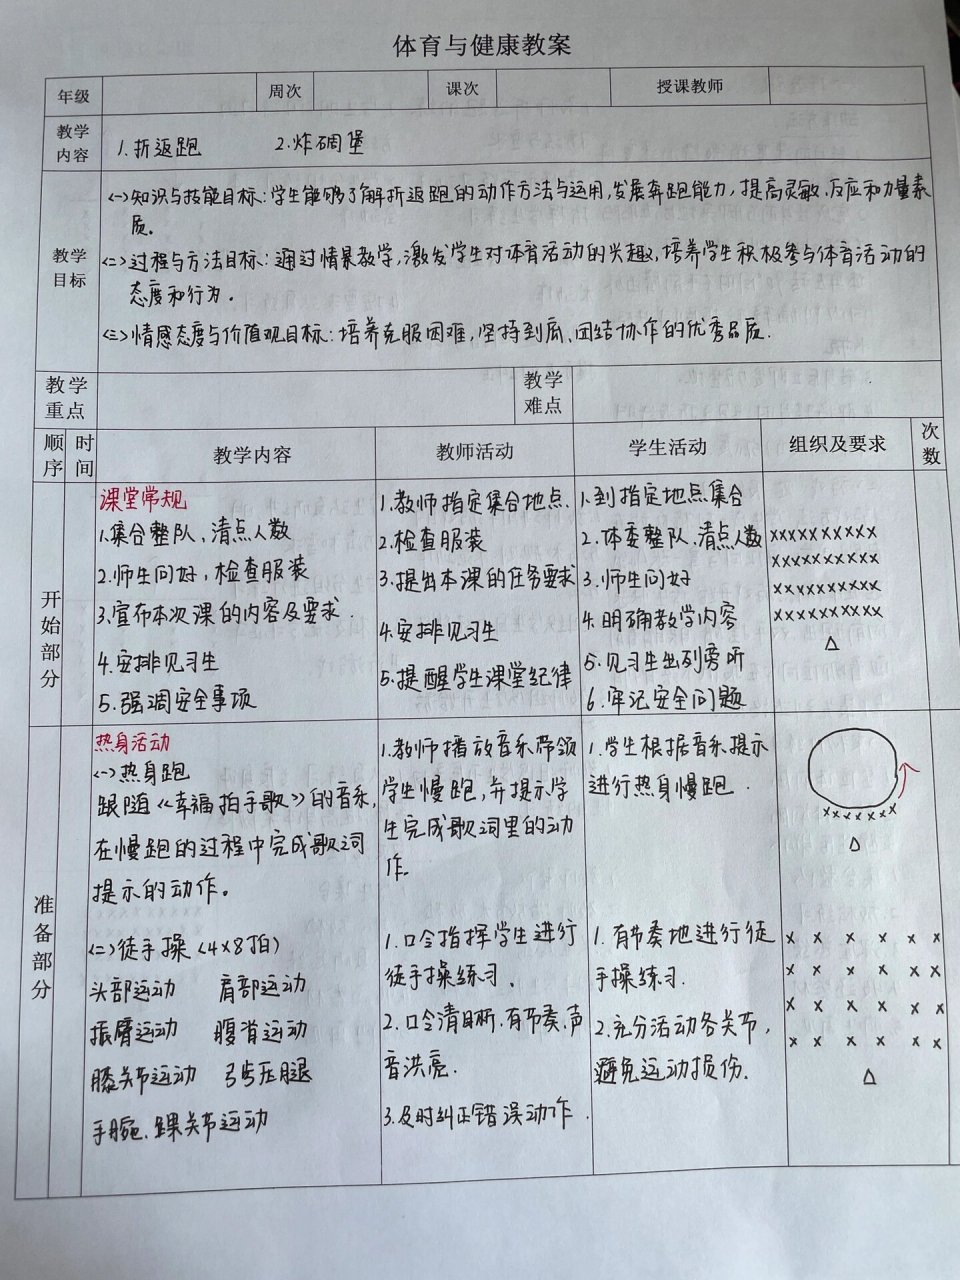 体育与健康教案
年级 周次 课次 授课教师
教学内容 1.折返跑 2.炸碉堡
教学目标
<一>知识与技能目标:学生能够了解折返跑的动作方法与运用,发展奔跑能力,提高灵敏.反应和力量素
质。
<二>过程与方法目标:通过情景教学,激发学生对体育活动的兴趣,培养学生积极参与体育活动的
态度和行为。
<三>情感态度与价值观目标:培养克服困难,坚持到底、团结协作的优秀品质.
教学重点 教学难点
顺序 时间 教学内容 教师活动 学生活动 组织及要求 次数
开始部分
课堂常规
1.集合整队、清点人数
2.师生问好,检查服装
3.宣布本次课的内容及要求.
4.安排见习生
5.强调安全事项
1.教师指定集合地点.
2.检查服装
3.提出本课的任务要求
4.安排见习生
5.提醒学生课堂纪律
1.到指定地点集合
2.体委整队、清点人数
3.师生问好
4.明确教学内容
5.见习生出列旁听
6.牢记安全问题
xxxxxxxxxx
xxxxxxxxxx
xxxxxxxxxx
xxxxxxxxxx
△
准备部分
热身活动
<一>热身跑
跟随《幸福拍手歌》的音乐,
在慢跑的过程中完成歌词
提示的动作。
<二>徒手操<4×8拍)
头部运动 肩部运动
振臂运动 腹背运动
膝关节运动 弓步压腿
手腕、踝关节运动
1.教师播放音乐带领
学生慢跑,并提示学
生完成歌词里的动
作.
1.口令指挥学生进行
徒手操练习.
2.口令清晰.有节奏.声
音洪亮.
3.及时纠正错误动作.
1.学生根据音乐提示
进行热身慢跑.
1.有节奏地进行徒
手操练习.
2.充分活动各关节,
避免运动损伤.
xxxxxxx
△
x x x x x x
x x x x x x
x x x x x x
x x x x x x
△